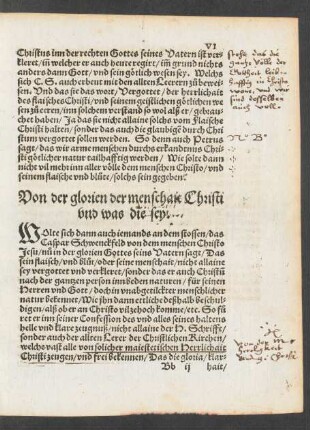 VI
Christus inn der rechten Gottes seines Vatern ist ver⸗
kleret / inn welcher er auch heute regirt / im grund nichts
anders dann Gott / vnd sein götlich wesen sey. Welchs
sich C. S. auch erbeut mit den alten Lerern zu bewei⸗
sen. Vnd das sie das wort / Vergottet / der herrlichait
des flaisches Christi / vnd seinem geistlichen götlichen we
sen zu eeren / inn solchem verstand so wol alß er / gebrau⸗
chet haben / Ja das sie nicht allaine solchs vom Flaische
Christi halten / sonder das auch die glaubige durch Chri
stum vergottet sollen werden. So denn auch Petrus
sagt / das wir arme menschen durchs erkandtnus Chri⸗
sti götlicher natur tailhafftig werden / Wie solte dann
nicht vil mehr inn aller völle dem menschen Christo / vnd
seinem flaische vnd blüte / solchs sein gegeben?
Von der glorien der menschait Christi
vnd was die sey.
WOlte sich dann auch iemands an dem stossen / das
Caspar Schwenckfeld von dem menschen Christo
Jesu / nu in der glorien Gottes seins Vatern sagt / Das
sein flaisch / vnd blüt / oder seine menschait / nicht allaine
sey vergottet vnd verkleret / sonder das er auch Christū
nach der gantzen person inn beden naturen / für seinen
Herren vnd Gott / doch in vnabgetilckter menschlicher
natur bekennet / Wie jhn dann etliche deßhalb beschul⸗
digen / alß ob er an Christo vil zehoch kome / etc. So fü
ret er inn seiner Confession des vnd alles seines haltens
helle vnd klare zeugnuß / nicht allaine der H. Schrifft /
sonder auch der alten Lerer der Christlichen Kirchen /
welchs vast alle von solicher maiestetischen Herrlichait
Christi zeugen / vnd frei bekennen / Das die gloria / klar⸗
Bb ij hait /
das die
gantze völle der
Gotthait leib⸗
hafftig in Christo
wone, vnd wir
sind desselben
auch voll.
N B
Von der M
herrligkeit
Christi